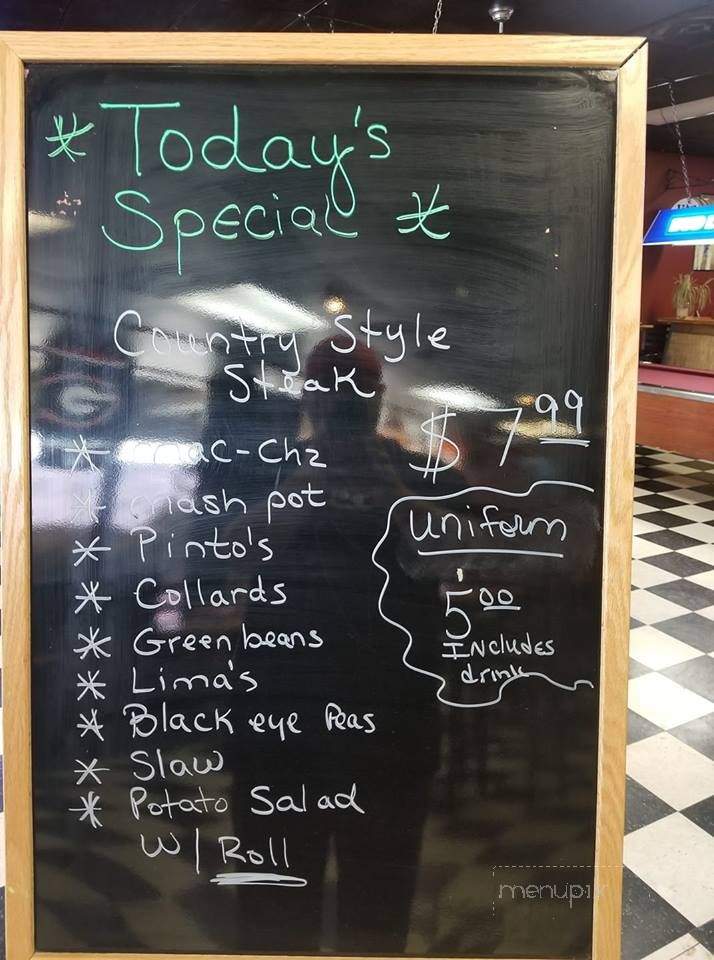 * Today's
Special *
Country Style
Steak
$7.99
* mac-chz
* mash pot
* Pinto's
* Collards
* Green beans
* Lima's
* Black eye Peas
* Slaw
* Potato Salad
w/ Roll
uniform
5.00
INcludes
drink
menupix